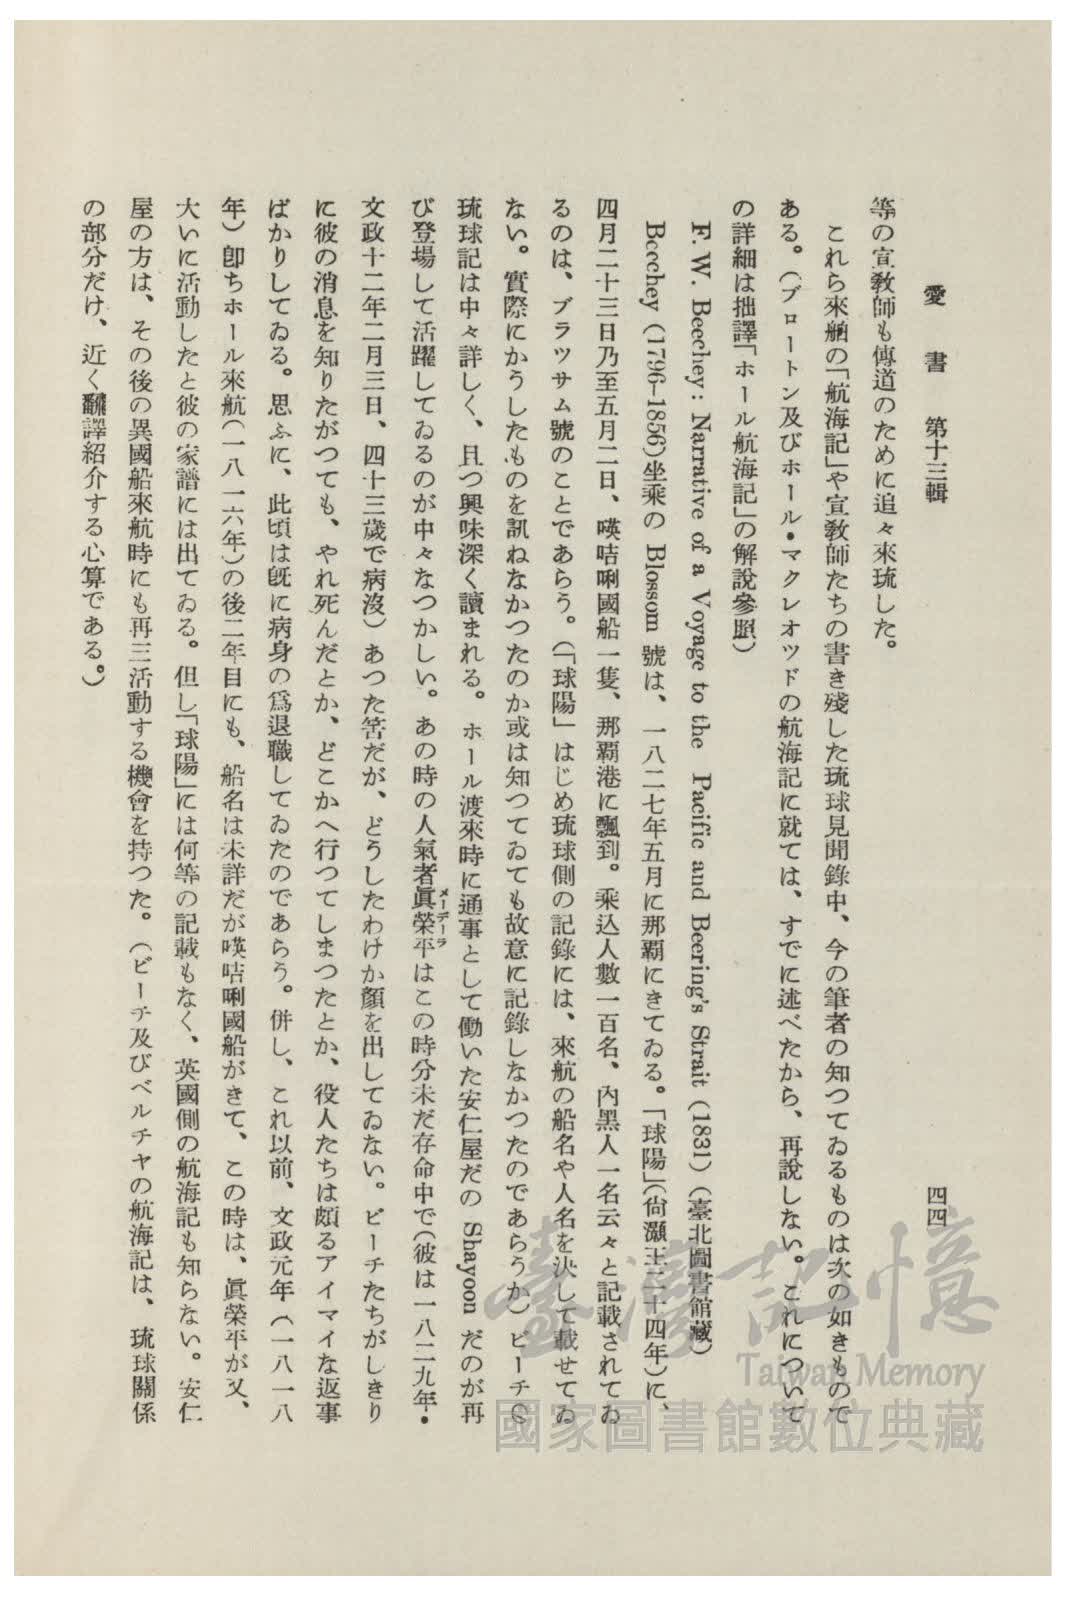 愛書 第十三輯
四四
等の宣敎師も傳道のために追々來琉した。
これら來舶の「航海記」や宣敎師たちの書き殘した琉球見聞錄中、今の筆者の知つてゐるものは次の如きもので
ある。(ブロートン及びホール・マクレオツドの航海記に就ては、すでに述べたから、再說しない。これについて
の詳細は拙譯「ホール航海記」の解說參照)
F. W. Beechey: Narrative of a Voyage to the Pacific and Beering's Strait (1831) (臺北圖書館藏)
Beechey (1796-1856)坐乘の Blossom 號は、一八二七年五月に那覇にきてゐる。「球陽」(尙灝王二十四年)に、
四月二十三日乃至五月二日、暎咭唎國船一隻、那覇港に飄到。乘込人數一百名、內黑人一名云々と記載されてゐ
るのは、ブラツサム號のことであらう。(「球陽」はじめ琉球側の記錄には、來航の船名や人名を決して載せてゐ
ない。實際にかうしたものを訊ねなかつたのか或は知つてゐても故意に記錄しなかつたのであらうか)ビーチの
琉球記は中々詳しく、且つ興味深く讀まれる。ホール渡來時に通事として働いた安仁屋だの Shayoon だのが再
び登場して活躍してゐるのが中々なつかしい。あの時の人氣者眞榮平メーデーラはこの時分未だ存命中で(彼は一八二九年・
文政十二年二月三日、四十三歲で病沒)あつた筈だが、どうしたわけか顏を出してゐない。ビーチたちがしきり
に彼の消息を知りたがつても、やれ死んだとか、どこかへ行つてしまつたとか、役人たちは頗るアイマイな返事
ばかりしてゐる。思ふに、此頃は旣に病身の爲退職してゐたのであらう。併し、これ以前、文政元年(一八一八
年)卽ちホール來航(一八一六年)の後二年目にも、船名は未詳だが暎咭唎國船がきて、この時は、眞榮平が又、
大いに活動したと彼の家譜には出てゐる。但し「球陽」には何等の記載もなく、英國側の航海記も知らない。安仁
屋の方は、その後の異國船來航時にも再三活動する機會を持つた。(ビーチ及びベルチヤの航海記は、琉球關係
の部分だけ、近く飜譯紹介する心算である。)
臺灣記憶
Taiwan Memory
國家圖書館數位典藏